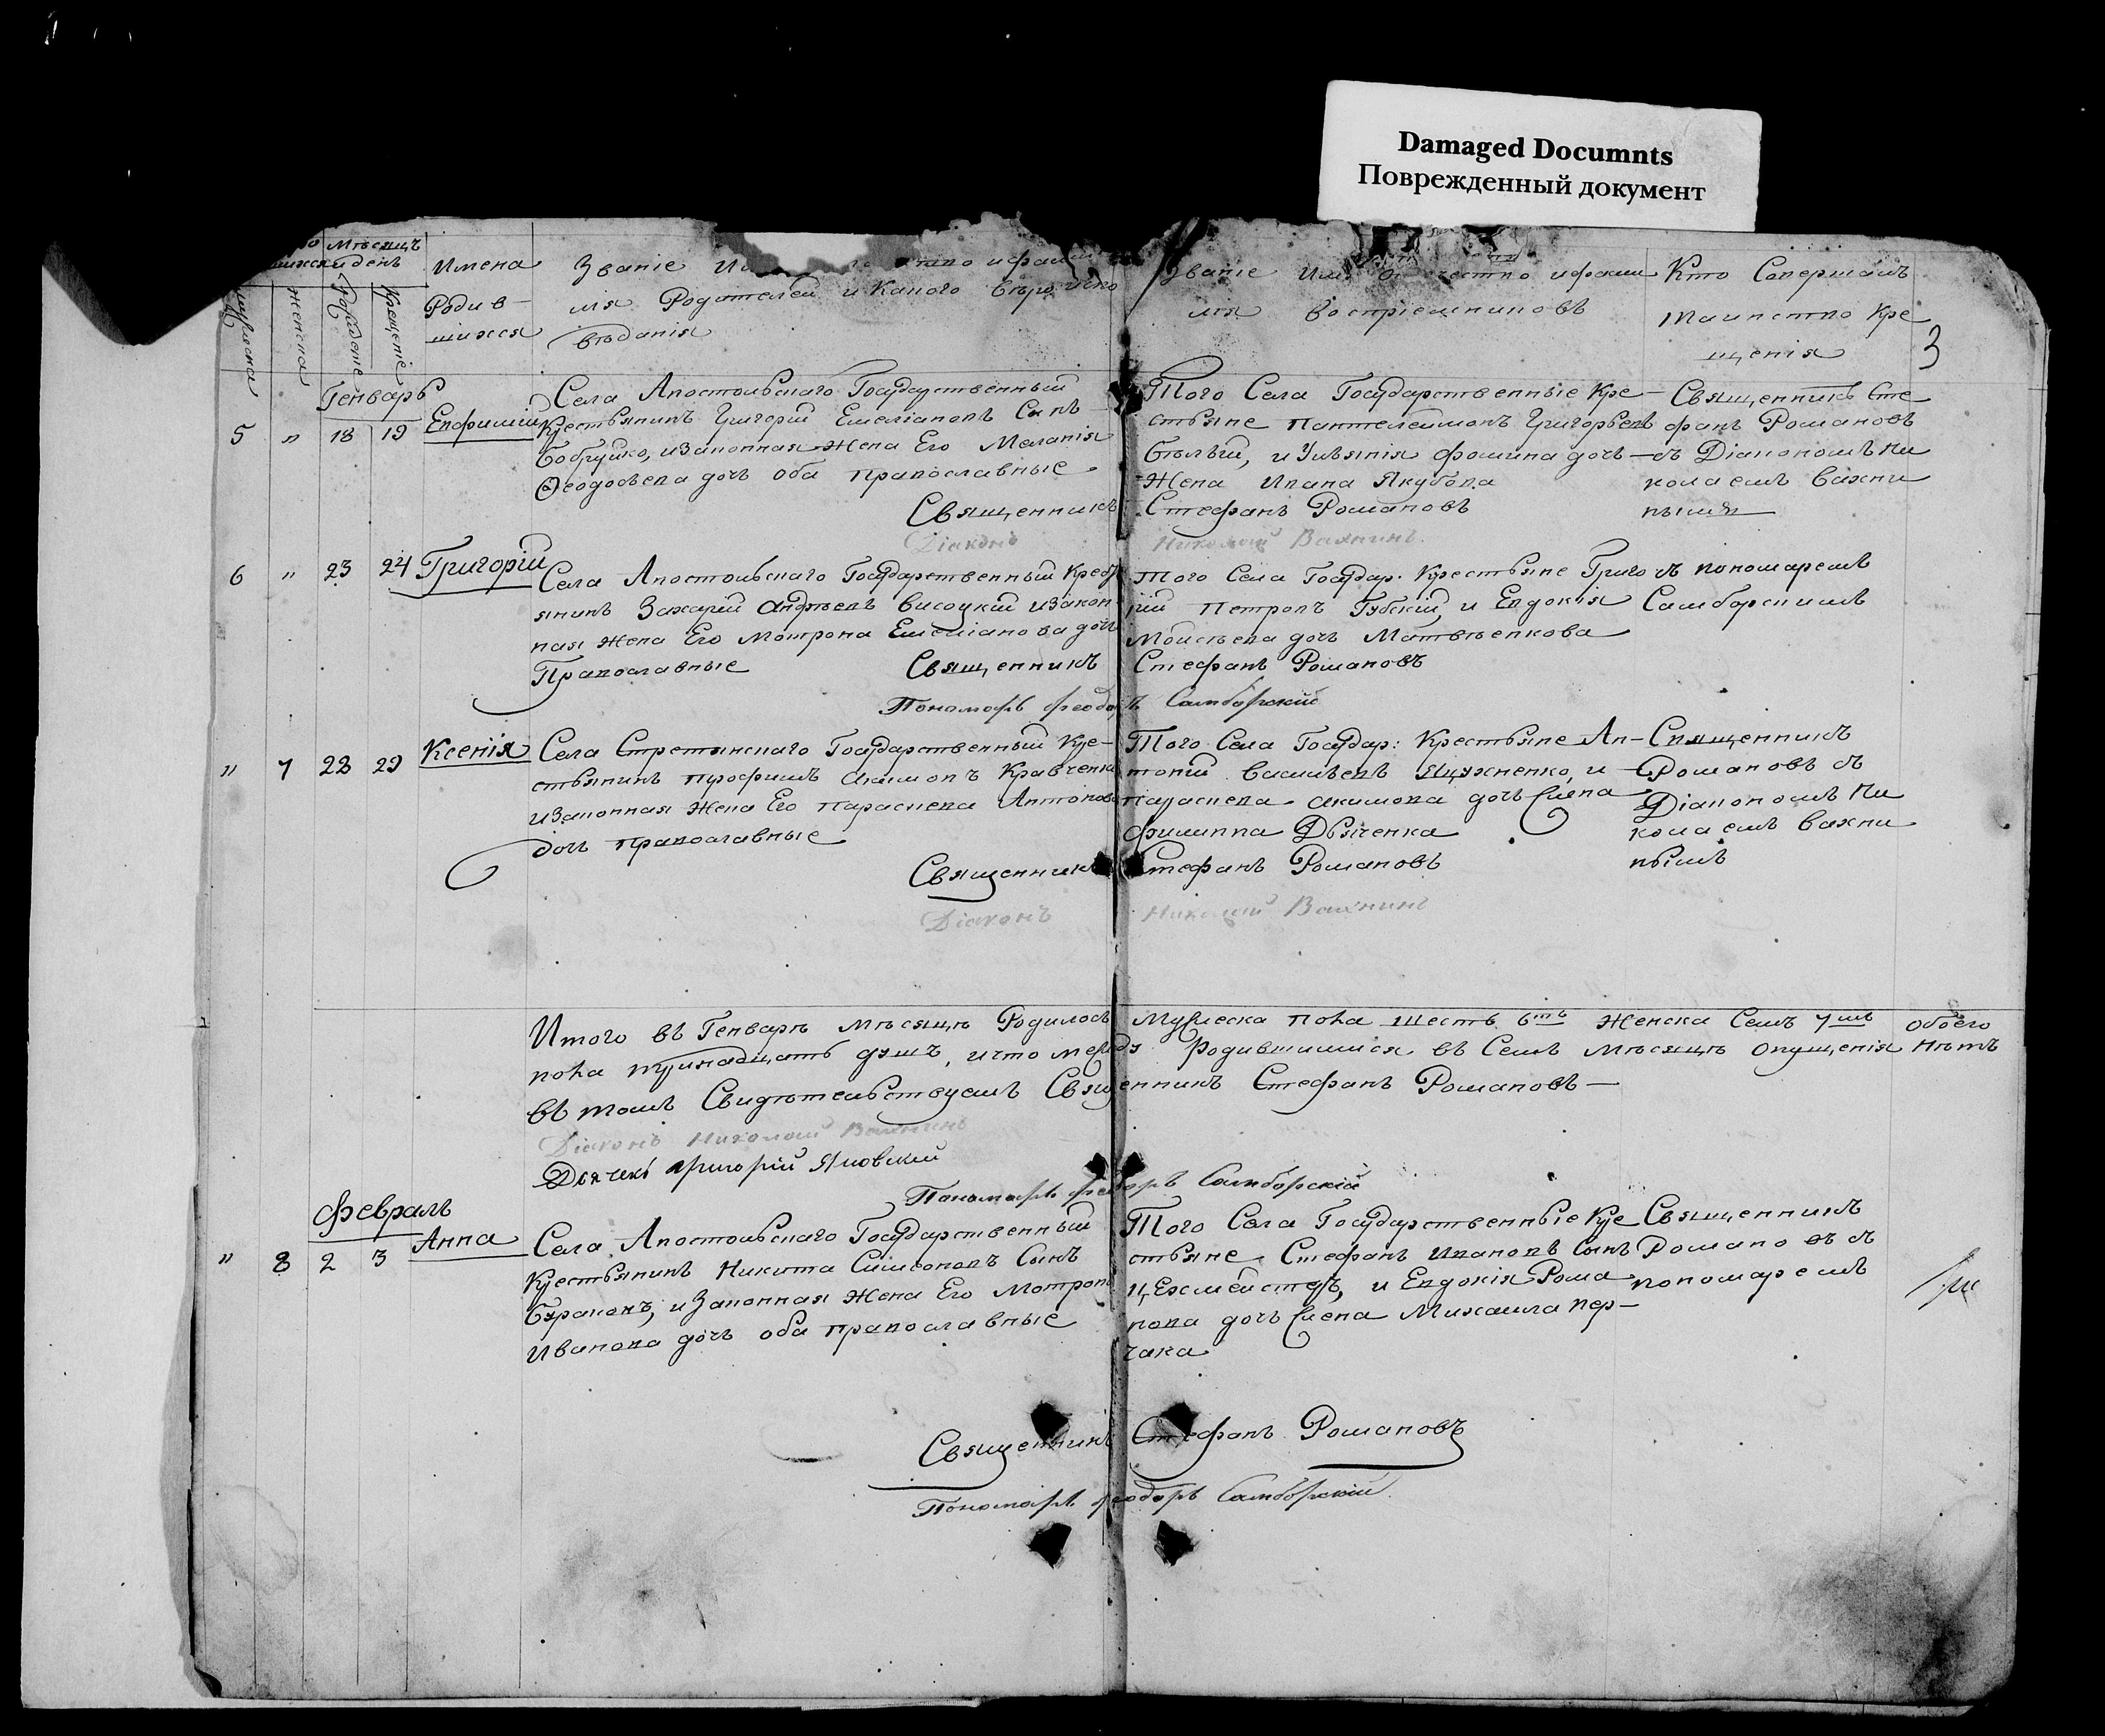 Damaged Documnts
Поврежденный документ
Мѣсяцъ
и день
Имена
Родив-
шихся
Званіе
лія Родителей и Какого вѣро испо
вѣданія
Званіе Имя отчество и фами
лія воспріемниковъ
Кто Совершалъ
таинство Кре
щенія
3
Мужеска
Женска
Рожденіе
Крещеніе
Генварь
5 " 18 19 Евфимій
Села Апостольскаго Государственный
Крестьянинъ Григорій Емеліановъ Сынъ
Бобрушко, и Законная Жена Его Меланія
Ѳеодосѣева дочь оба православные
Того Села Государственные Кре-
стьяне Пантелеимонъ Григорьевъ
бѣлый, и Ульянія Фомина дочь
Жена Ивана Якубова
Священникъ Сте
фанъ Романовъ
съ Діакономъ Ни
колаемъ Вахни
нымъ
Священникъ Стефанъ Романовъ
Діаконъ Николай Вахнинъ
6 " 23 24 Григорій
Села Апостольскаго Государственный Кресть
янинъ Захарій Андрѣевъ Висоцкій и Закон
ная жена Его Мотрона Емеліанова дочь
Православные
Того Села Государ. Крестьяне Григо
рій Петровъ Губскій, и Евдокія
Моисѣева дочь Матвѣенкова
съ пономаремъ
Самборскимъ
Священникъ Стефанъ Романовъ
Пономарь Феодоръ Самборскій
" 7 28 29 Ксенія
Села Стретинскаго Государственный Кре-
стьянинъ Трофимъ Акимовъ Кравченко
и Законная Жена Его Параскева Антонова
дочь православные
Того Села Государ: Крестьяне Ан-
тоній Васильевъ Яцухненко, и
Параскева Акимова дочь Жена
Филиппа Дьяченка
Священникъ
Романовъ съ
Діакономъ Ни
колаемъ Вахни
нымъ
Священникъ Стефанъ Романовъ
Діаконъ Николай Вахнинъ
Итого въ Генварѣ мѣсяцѣ Родилось Мужеска пола шесть 6ть Женска Семь 7мь обоего
пола тринадцать душъ, и что между Родившимися въ Семъ мѣсяцѣ опущенія нѣтъ
въ томъ Свидѣтельствуемъ Священникъ Стефанъ Романовъ
Діаконъ Николай Вахнинъ
Дьячекъ Григорій Яновскій
Пономарь Феодоръ Самборскій
Февраль
" 8 2 3 Анна
Села Апостольскаго Государственный
Крестьянинъ Никита Симеоновъ Сынъ
Бураковъ, и Законная Жена Его Мотрона
Иванова дочь оба православные
Того Села Государственные Кре
стьяне Стефанъ Ивановъ Сынъ
Цехмейстеръ, и Евдокія Рома
нова дочь Жена Михаила Пер-
чака
Священникъ
Романовъ съ
пономаремъ
Священникъ Стефанъ Романовъ
Пономарь Феодоръ Самборскій